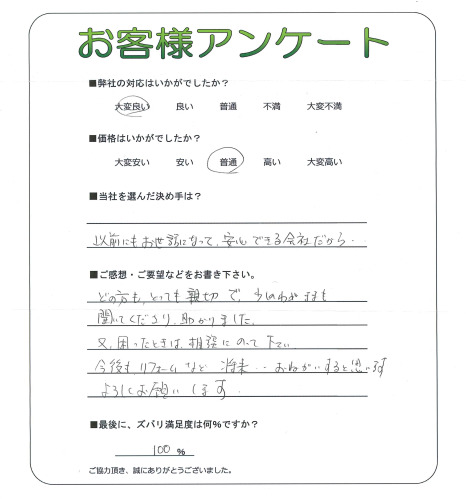 お客様アンケート
■弊社の対応はいかがでしたか？
大変良い 良い 普通 不満 大変不満
■価格はいかがでしたか？
大変安い 安い 普通 高い 大変高い
■当社を選んだ決め手は？
以前にもお世話になって、安心できる会社だから.
■ご感想・ご要望などをお書き下さい。
どの方も、とっても親切で、うちのわがままも
聞いてくださり、助かりました.
又、困ったときは、相談にのって下さい
今後も、リフォームなど 将来‥おねがいすると思います
よろしくお願いします.
■最後に、ズバリ満足度は何%ですか？
100 %
ご協力頂き、誠にありがとうございました。